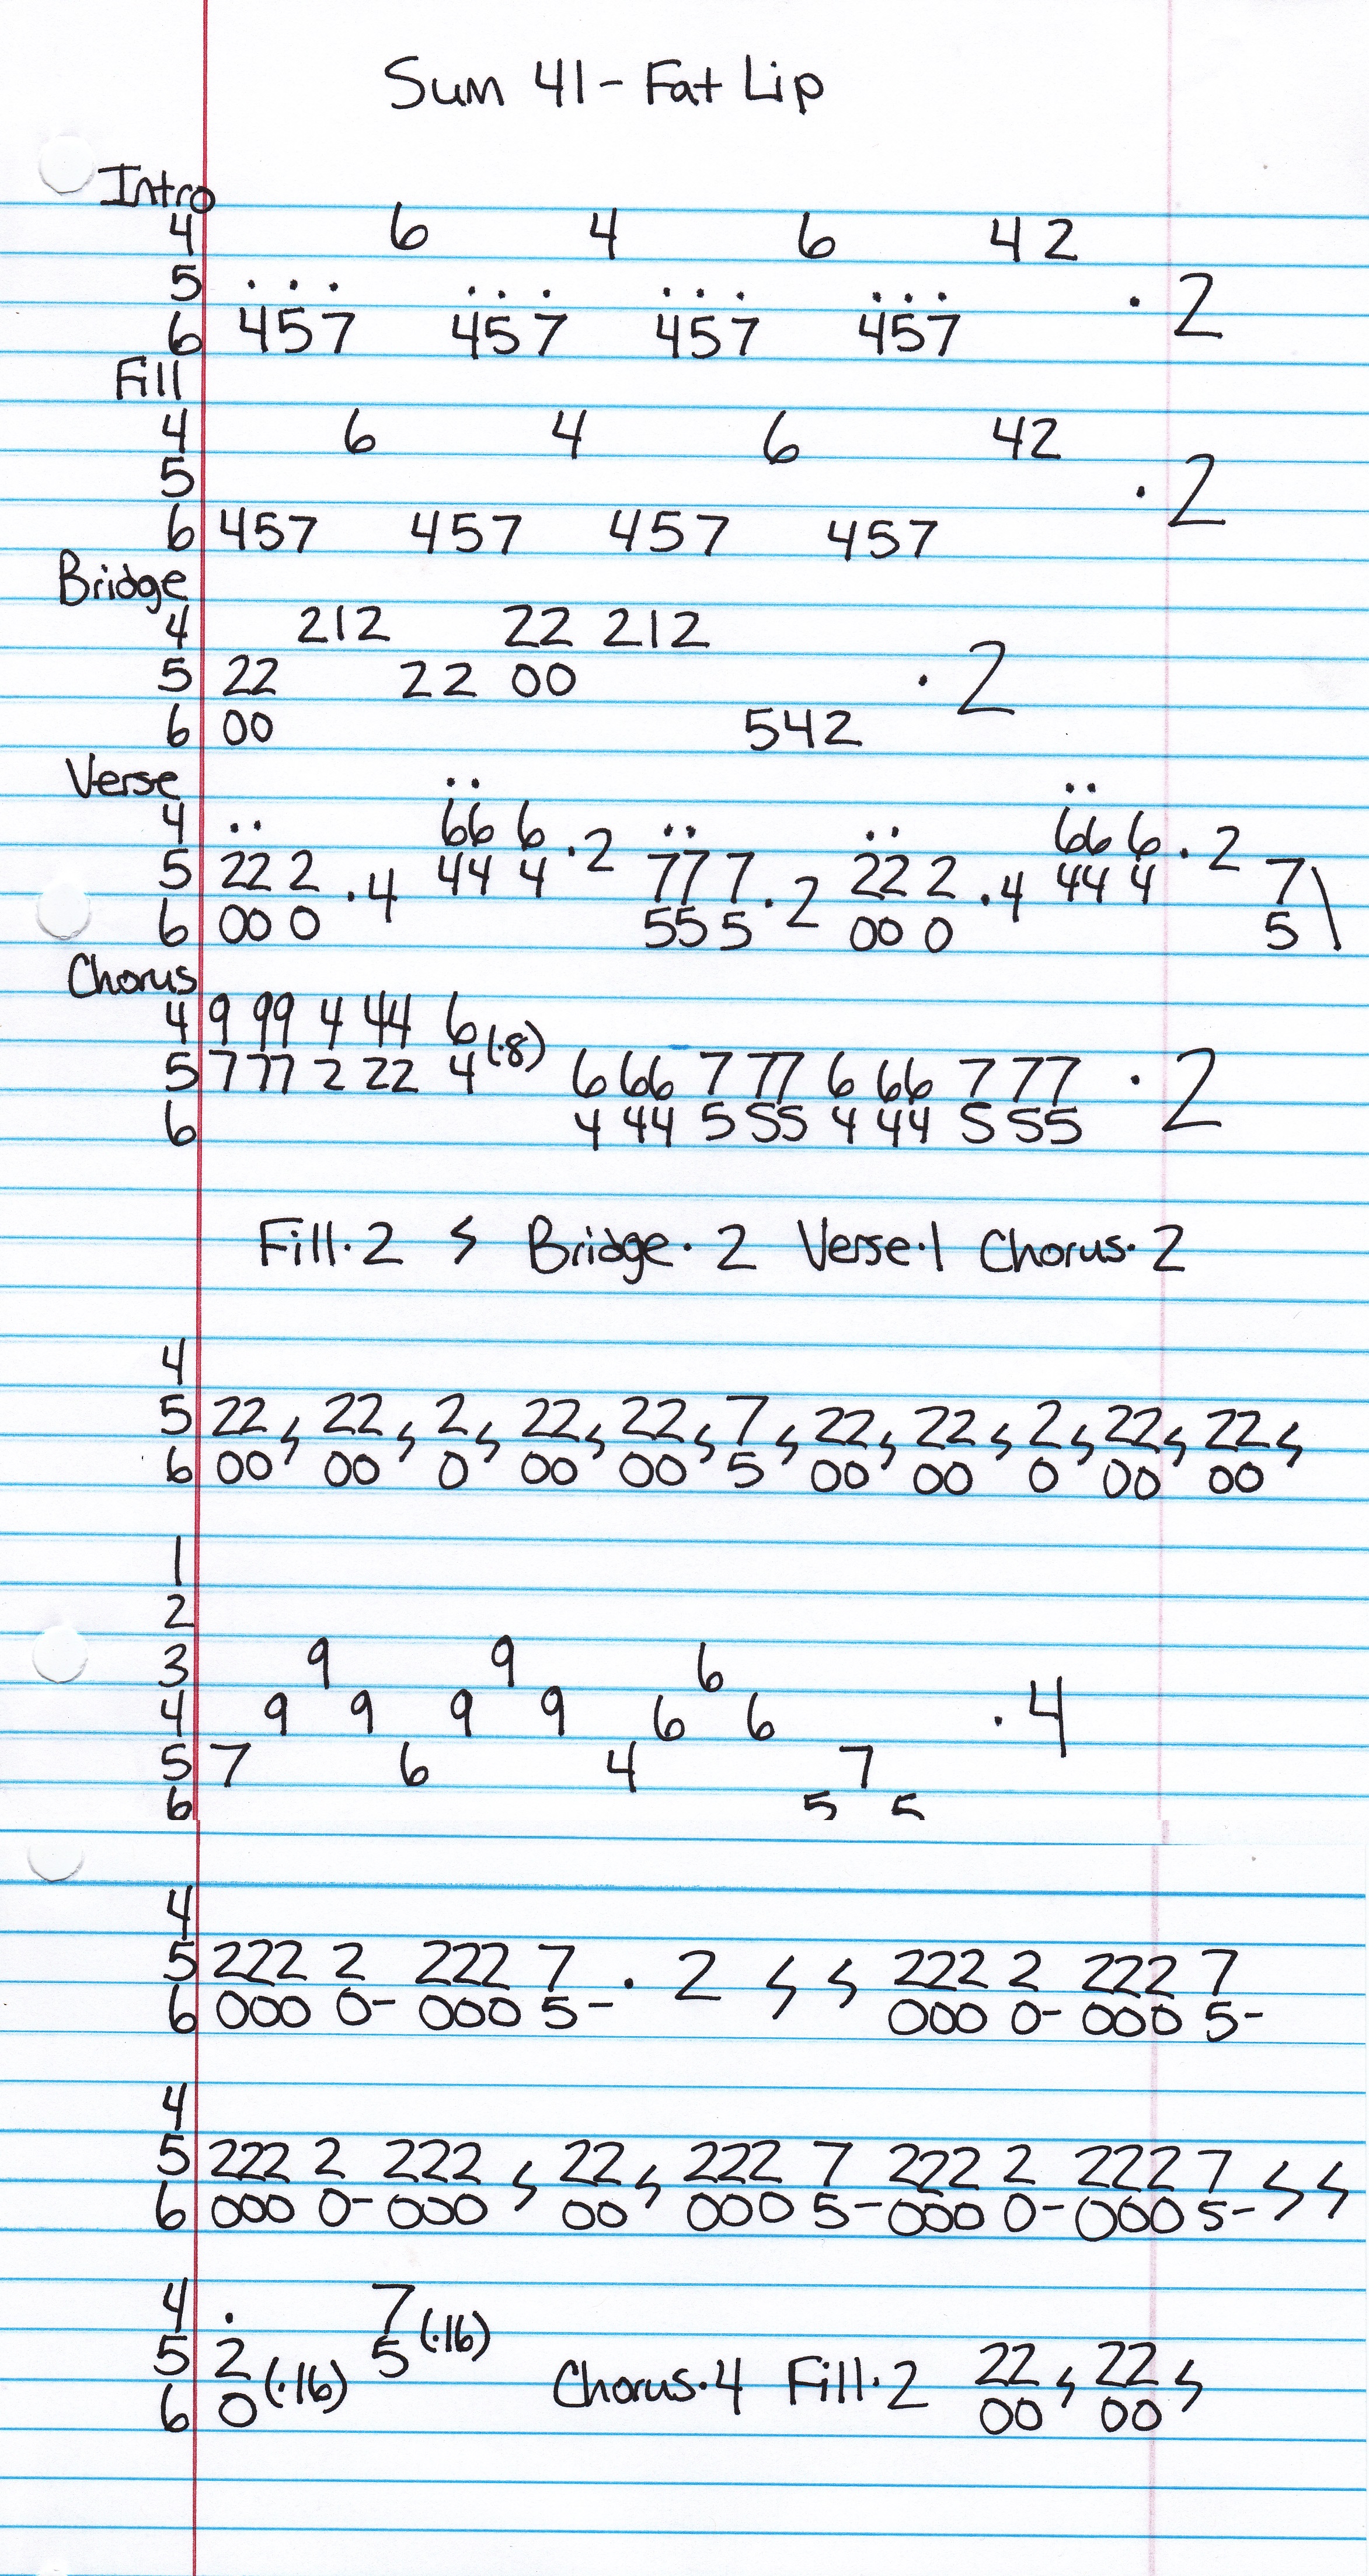 Sum 41 - Fat Lip
Intro
4 6 4 6 4 2
5 . . . . . . . . . . . . · 2
6 457 457 457 457
Fill
4 6 4 6 42
5 · 2
6 457 457 457 457
Bridge
4 212 22 212
5 22 22 00 · 2
6 00 542
Verse
.. ..
4 .. 66 6 ·2 .. .. 66 6 ·2
5 22 2 ·4 44 4 77 7 ·2 22 2 ·4 44 4 7 \
6 00 0 55 5 00 0 5
Chorus
4 9 99 4 44 6
5 7 77 2 22 4 (·8) 6 66 7 77 6 66 7 77 · 2
6 4 44 5 55 4 44 5 55
Fill·2 𝄽 Bridge·2 Verse·1 Chorus·2
4
5 22 𝄽 22 𝄽 2 𝄽 22 𝄽 22 𝄽 7 𝄽 22 𝄽 22 𝄽 2 𝄽 22 𝄽 22 𝄽
6 00 00 0 00 00 5 00 00 0 00 00
1
2
3 9 9 6
4 9 9 9 9 6 6 · 4
5 7 6 4 7
6 5 5
4
5 222 2 222 7 · 2 𝄽 𝄽 222 2 222 7
6 000 0- 000 5- 000 0- 000 5-
4
5 222 2 222 𝄽 22 𝄽 222 7 222 2 222 7 𝄽 𝄽
6 000 0- 000 00 000 5- 000 0- 000 5-
4 . 7
5 2 5 (·16) 22 𝄽 22 𝄽
6 0 (·16) Chorus·4 Fill·2 00 00